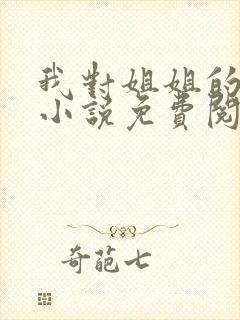 我對姐姐的
小說免費閱
奇葩七